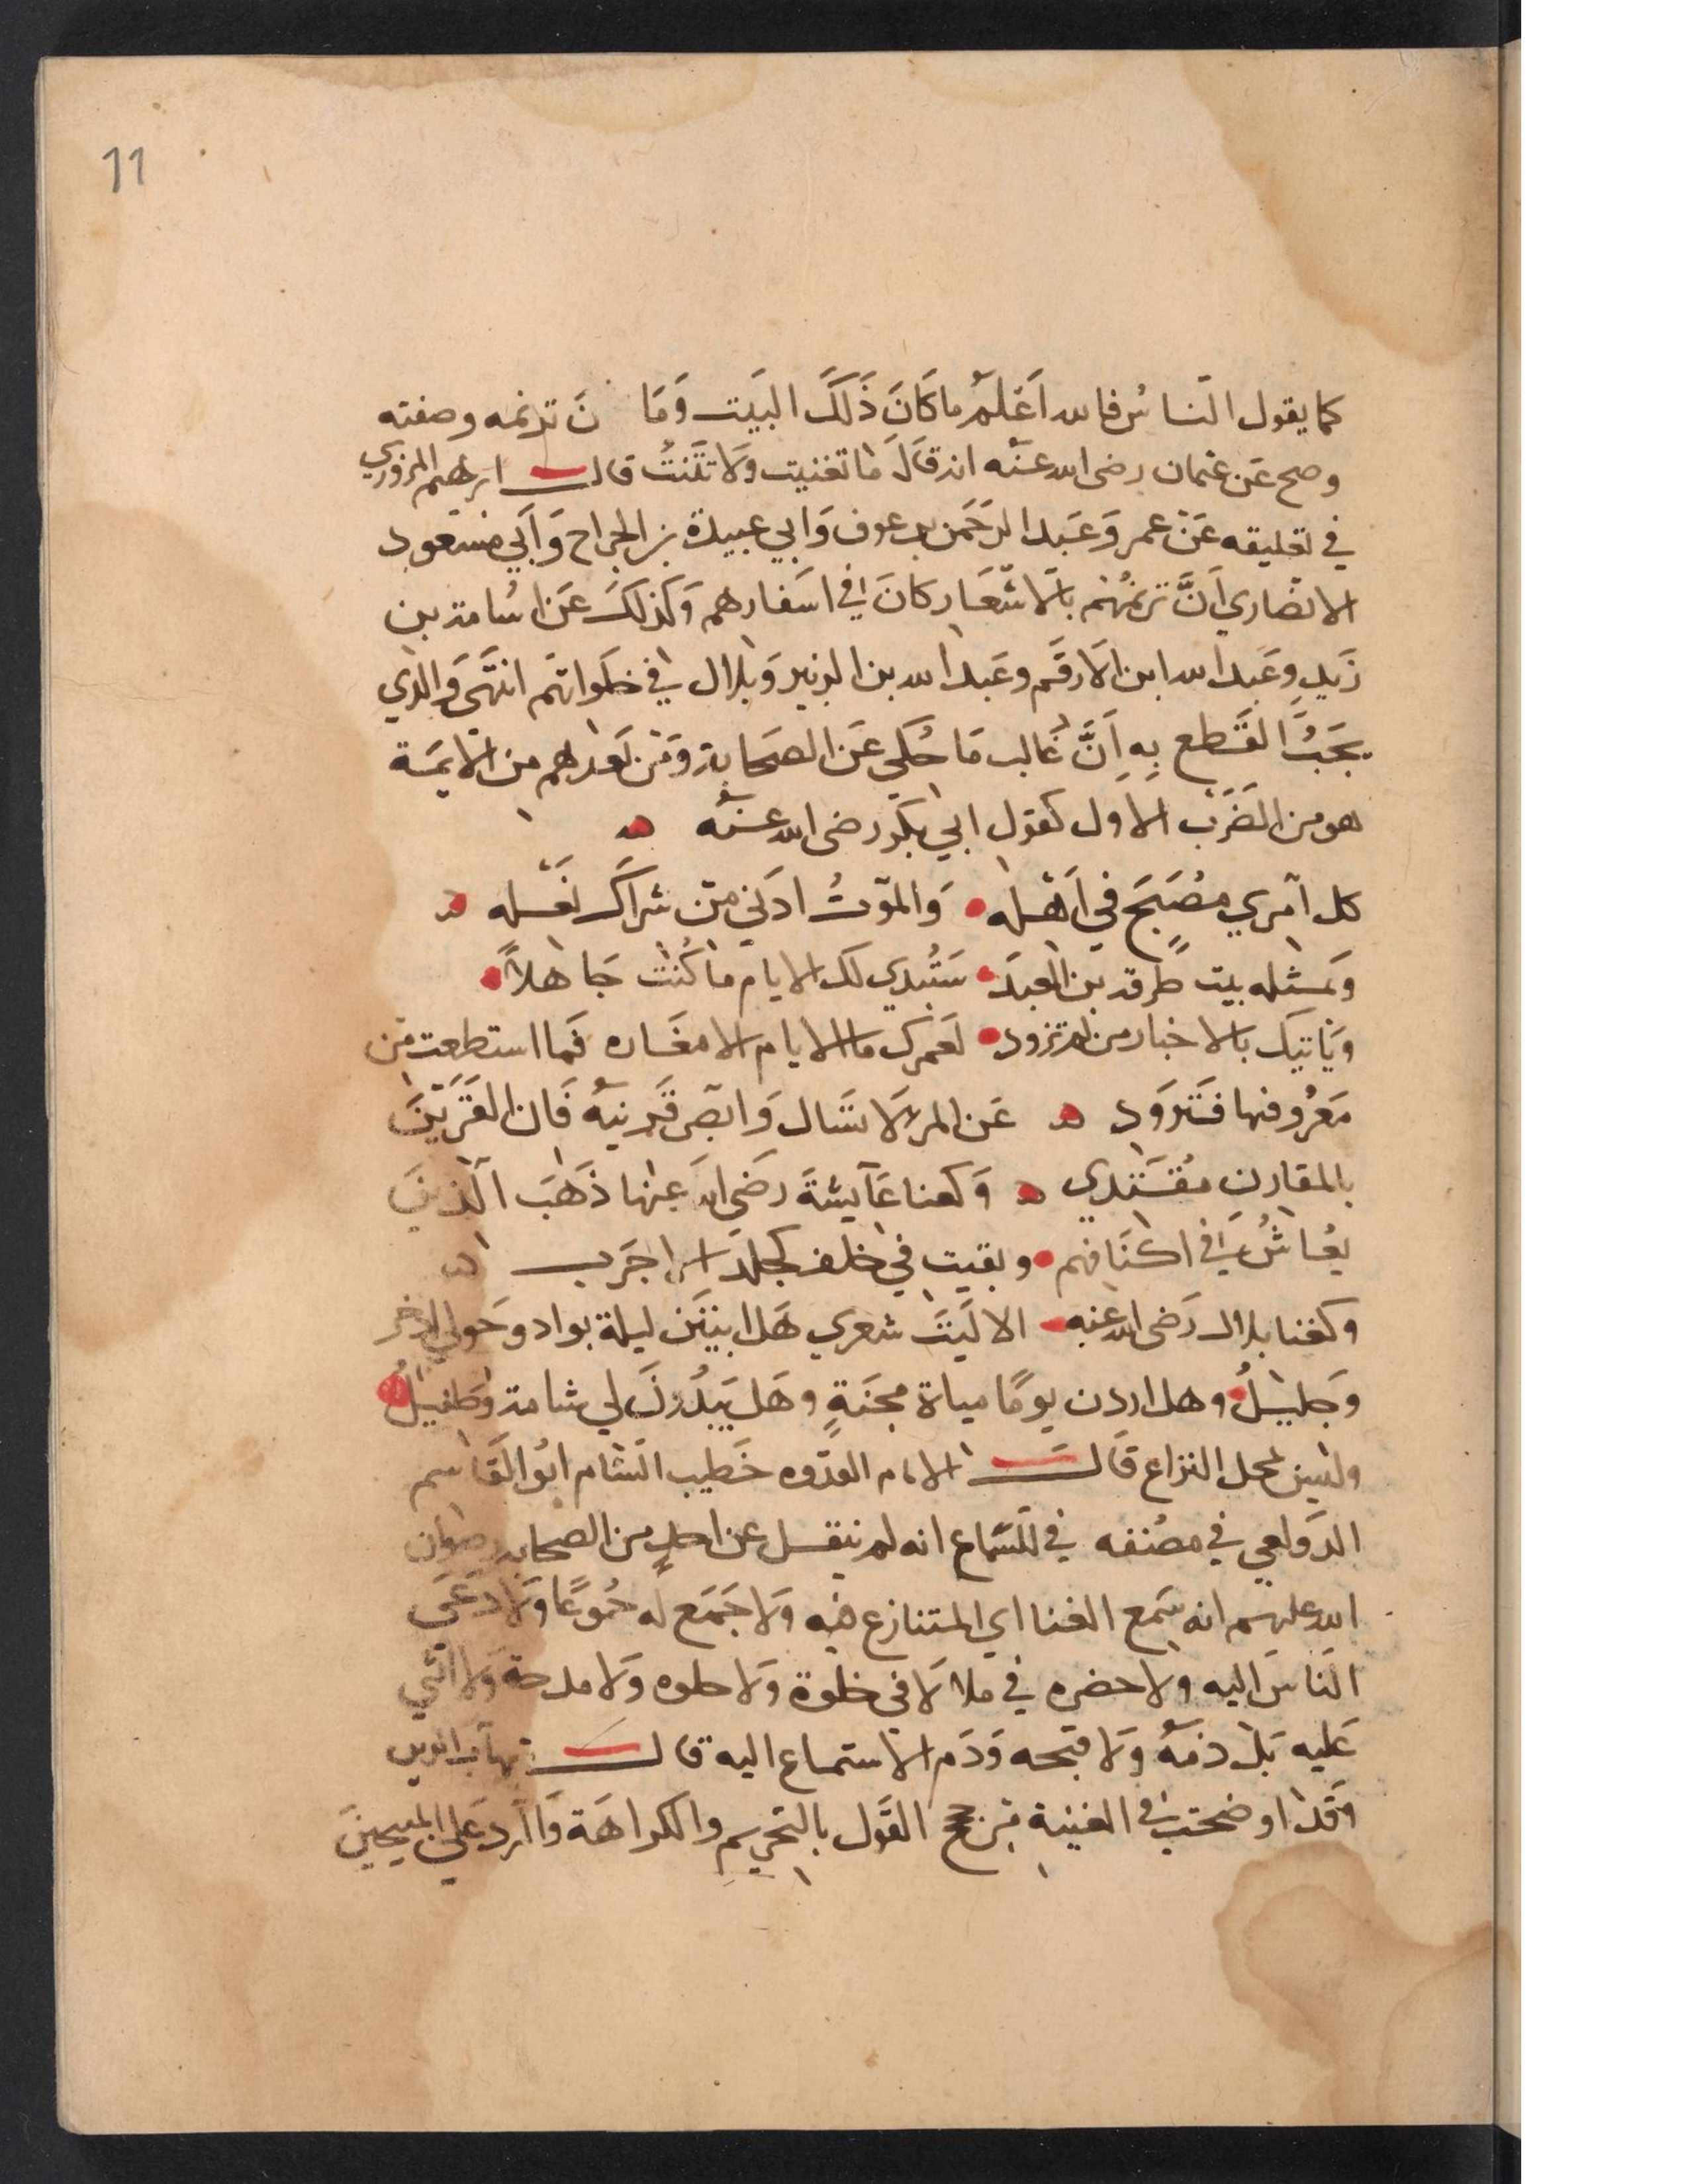 11
كما يقول الناسُ فالله اَعْلمُ ما كَانَ ذَلكَ البَيت وَمَا نَ ترنمه وصفته
وصح عَن عثمان رضى الله عَنْه انه قَالَ مَا تغنيت وَلَا تمَنيتُ قالــ ابرهيم المزوري
في تعليقه عَنْ عمر وَعَبد الرَحَمن بن عوف وَابي عبيدة بن الجراح وَأَبي مسَعود
الانصَاري اَنَّ ترنمُهم بَالاشعَار كانَ في اسَفارهم وَكَذلكَ عَن اسُامة بن
زَيدٍ وعَبد الله ابن الاَرقَم وعَبد الله بن الزبير وَبلال في خلَواتهَم انتهَى وَالذي
يجَبُ القَطع بِهِ اَنَّ غَالب مَا حُكي عَن الصحَابة وَمَن بَعدهم من الايمَة
هو من الضَرَب الاَول كقول ابي بَكر رضى الله عَنْهُ
كل اَمْري مُصَبَح في اَهْله وَالموَتُ ادَني منَ شرَاك نعَله
وَمثله بيت طَرفة بن العبدَ سَتُبدي لك الايام مَا كُنت جَاهلاً
ويَاتيك بالاخبار من لم تزود لعَمرك ما الايام الا معَاره فَما استطعت من
مَعرُوفها فَتَزوَد عَن المرء لَا تسَال وَابصَر قَرينهُ فَان القَرَينَ
بالمقارنِ مُقتَدي وَكغنا عَآيشةَ رضَي الله عنها ذَهَبَ الَذينَ
يعُاشُ في اكنَافهم وبقيت في خلف كجلدَ الاجَربــ
وكغنا بلال رَضى الله عنه الا ليَتَ شعري هَل ابيتَن ليلة بواد وحَولي اذخر
وجَليلُ وهل اردن يومًا مياة مجنَةٍ وهَل يَبدُونَ لي شامة وَطفيلُ
وليس محل النزاع قَالــ الامام القدوه خَطيب الشام ابوُ القَاسم
الدَولعي في مصُنفه في السَماع انه لم ينقل عن احدٍ من الصحابه رضوان
الله عليهم انه سَمع الغنا اي المتنازع فيه وَلا جَمَع له جُموعًا وَلَا دَعَى
الناسَ اليه ولا حضره في ملا وَلَا في خلوة وَلا حلوه وَلا مدحه وَلا اثني
عَليه بَل ذمَهُ وَلا قبحه وَذَم الاستماع اليه قالــ شهاب الدين
وَقدَ اوضحت في الغنية ترجح القَول بالتحريم والكراهَة وَالرد عَلى المبيحينَ